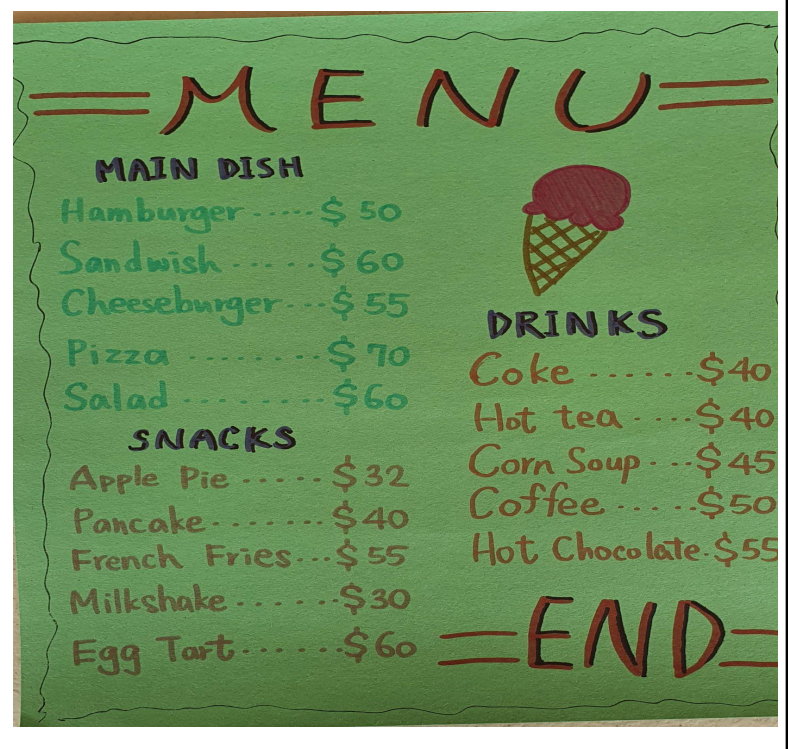 MENU
MAIN DISH
Hamburger ..... $ 50
Sandwish ...... $ 60
Cheeseburger ... $ 55
Pizza ........ $ 70
Salad ........ $60
SNACKS
Apple Pie ..... $32
Pancake ....... $40
French Fries ... $55
Milkshake ...... $30
Egg Tart ...... $60
DRINKS
Coke ...... $40
Hot tea .... $40
Corn Soup ... $45
Coffee ..... $50
Hot Chocolate . $55
END